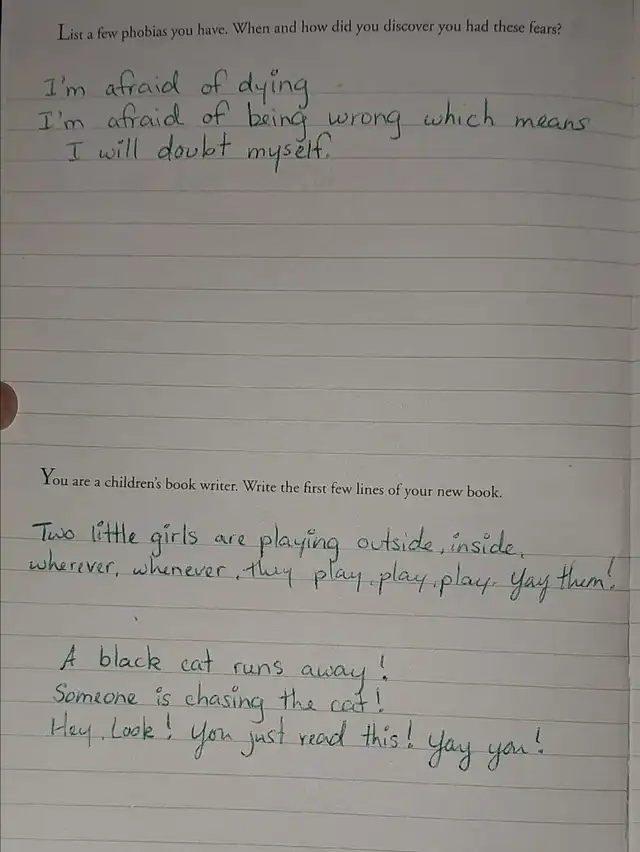 List a few phobias you have. When and how did you discover you had these fears?
I'm afraid of dying
I'm afraid of being wrong which means
I will doubt myself.
You are a children's book writer. Write the first few lines of your new book.
Two little girls are playing outside, inside,
wherever, whenever, they play, play, play. Yay them!
A black cat runs away!
Someone is chasing the cat!
Hey, Look! You just read this! Yay you!